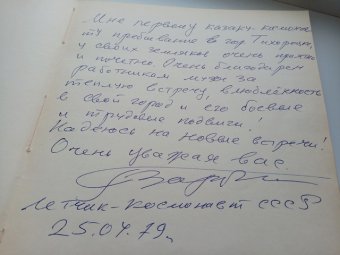 Мне первому казаку-космонав
ту пребывание в гор Тихорецк,
у своих земляков очень приятно
и почетно. Очень благодарен
работникам музея за
теплую встречу, влюблённость
в свой город и его боевые
и трудовые подвиги!
Надеюсь на новые встречи!
Очень уважая вас
Летчик-космонавт СССР
25.04.79г.